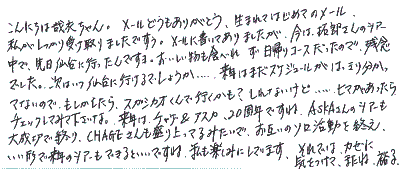 こんにちは成衣ちゃん。メールどうもありがとう、生まれてはじめてのメール、
私がしっかり受け取りましたですぅ。メールに書いてありましたが、今は、拓郎さんのツアー
中で、先日仙台に行ったんですヨ。おいしい物も食べれず日帰りコースだったので、残念
でした。次はいつ仙台に行けるでしょうか…。来年はまだスケジュールがはっきり分かっ
てないので、もしかしたら、スガシカオくんで行くかも？しれないけど…ヒマがあったら
チェックしてみて下さいな。来年は、チャゲ&アスカ、20周年ですね、ASKAさんのツアーも
大成功で終り、CHAGEさんも盛り上ってるみたいで、お互いのソロ活動を終え、
いい形で来年のツアーもできると…ですね、私も楽しみにしています。それでは、カゼに
気をつけて、またね。裕る